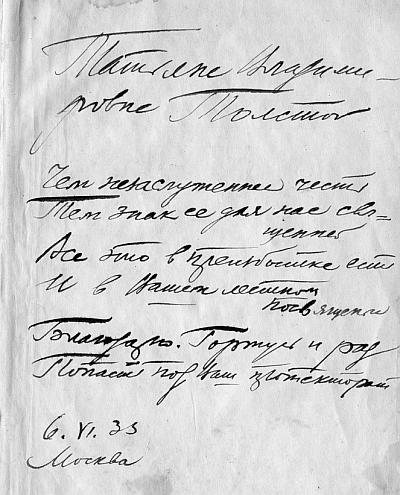 Татьяне Владими-
ровне Толстой
Чем незаслуженнее честь
Тем знак ее для нас свя=
щенней
Все это в преизбытке есть
И в Вашем лестном
посвященьи
Благодарю. Горжусь и рад
Попасть под Ваш протекторат
6. VI. 33
Москва